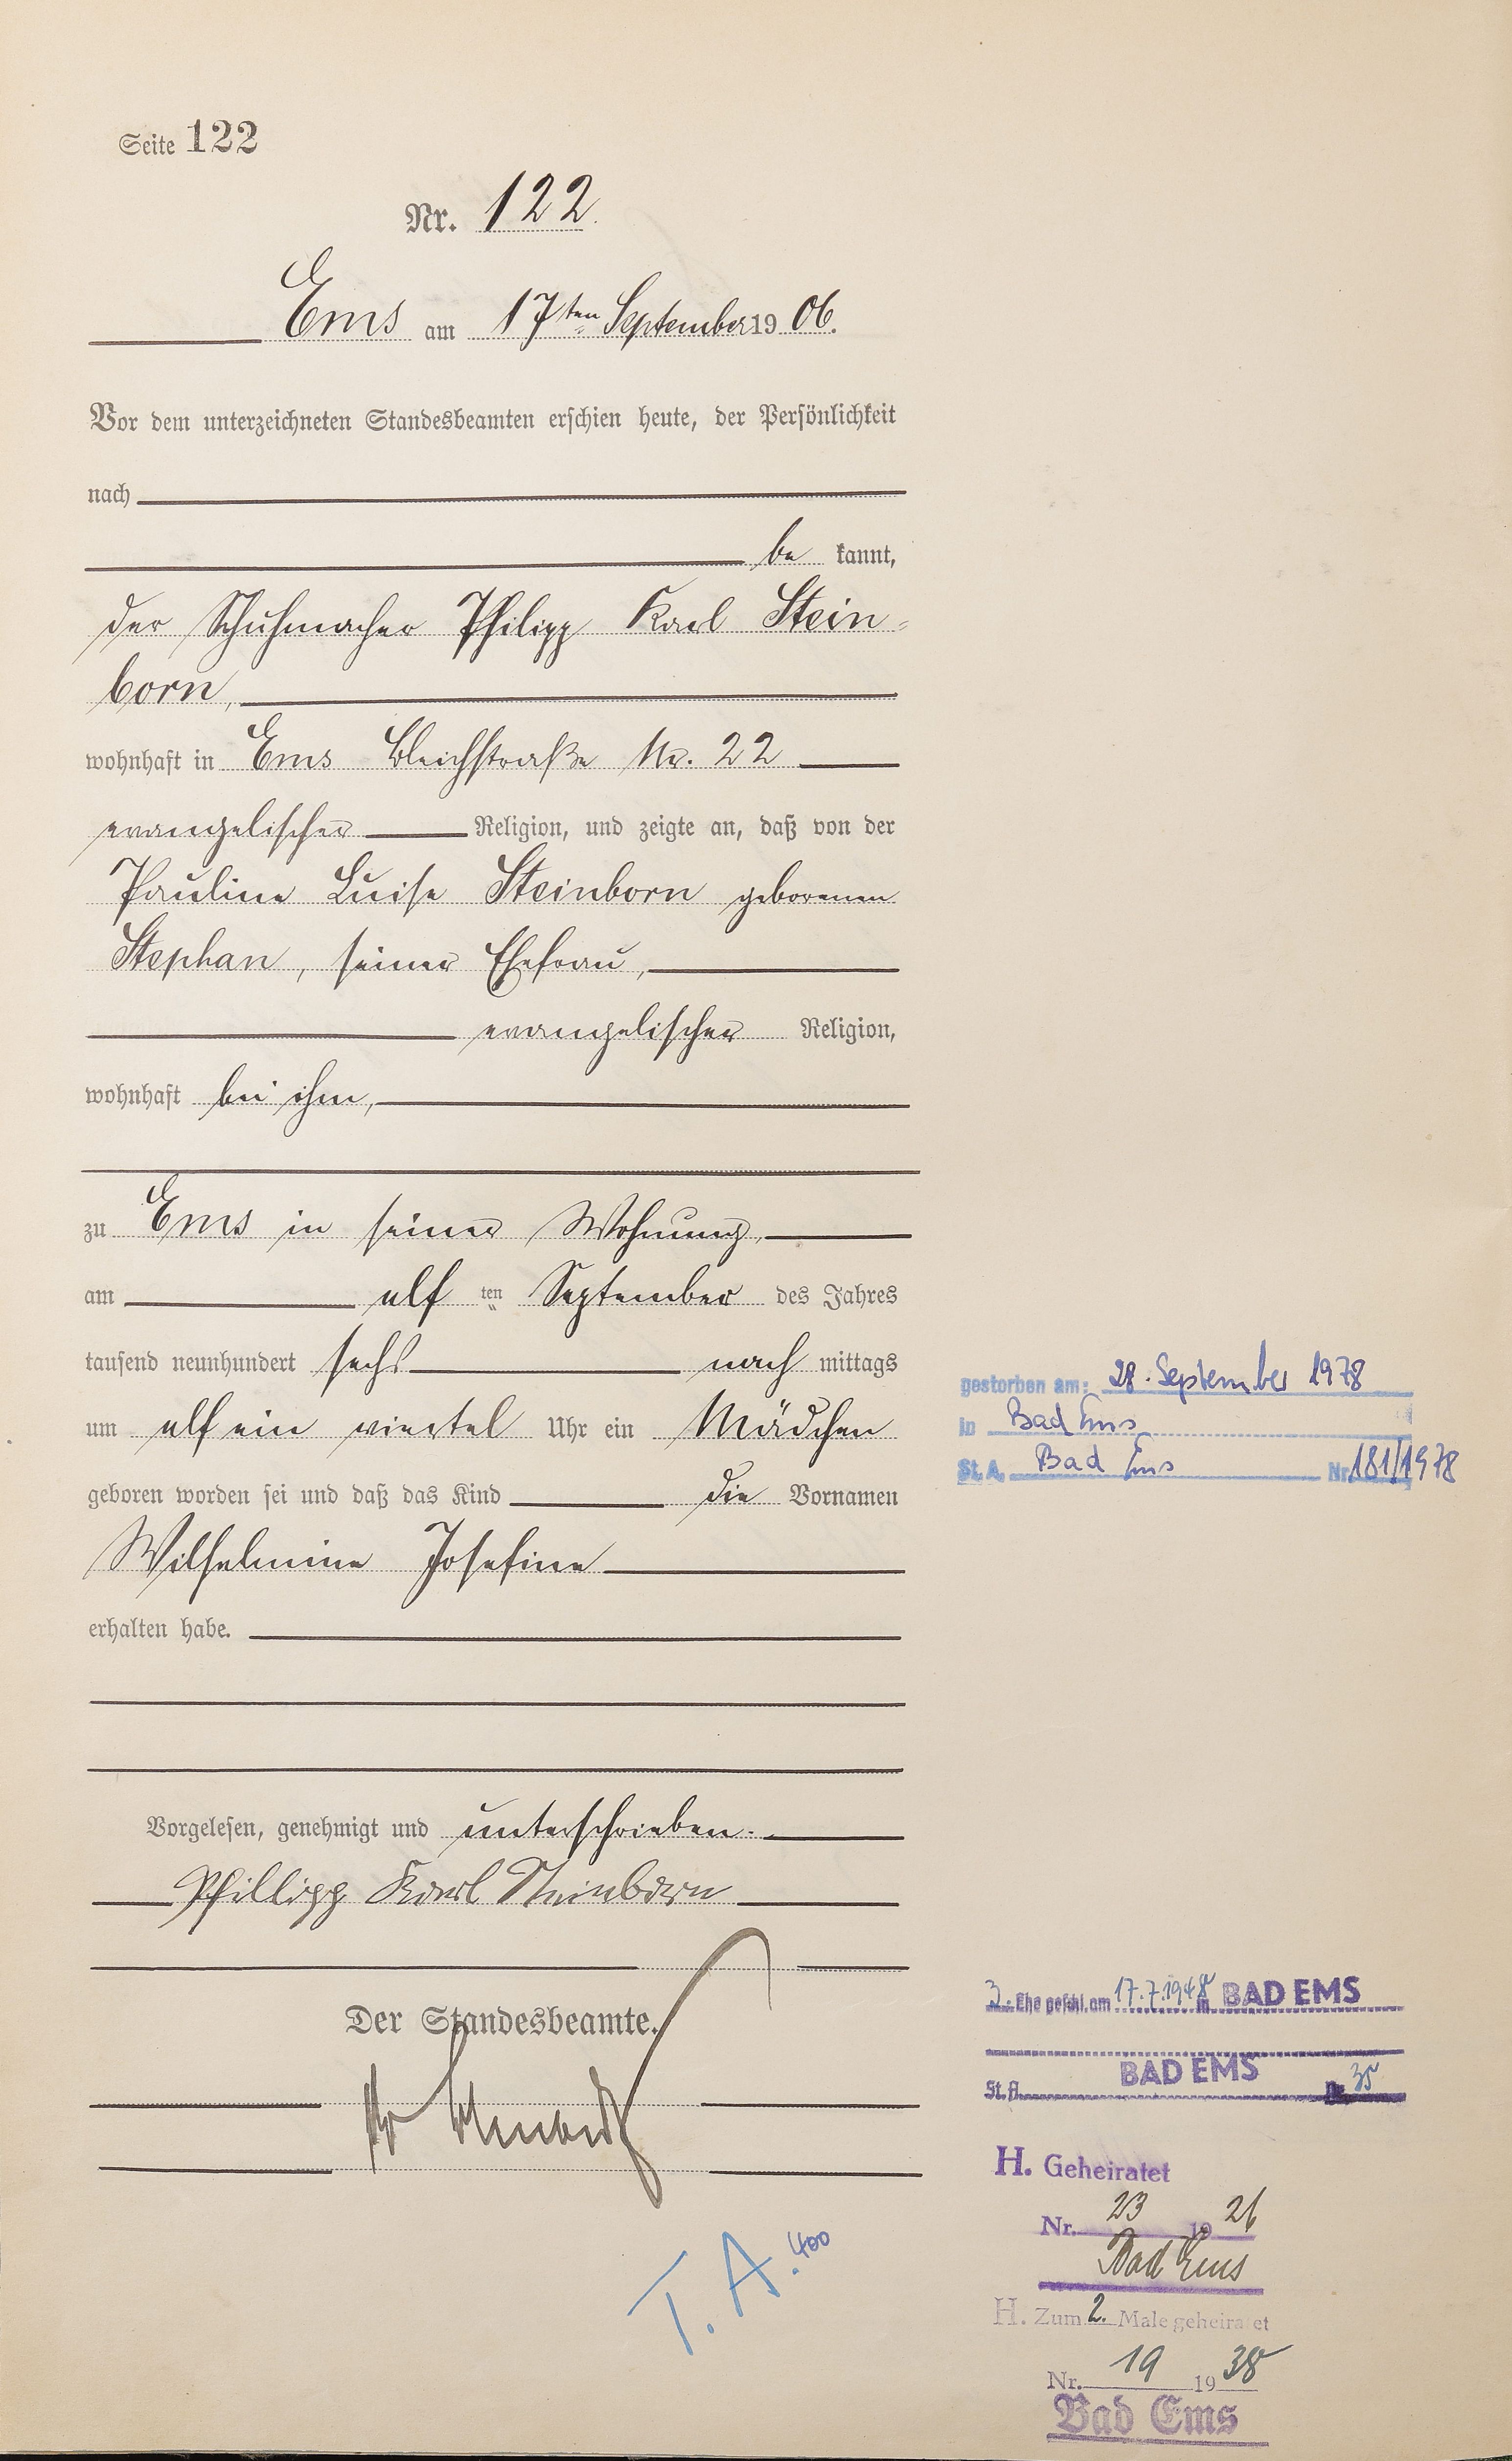 Seite 122
Nr. 122.
Ems am 17ten September 1906.
Vor dem unterzeichneten Standesbeamten erschien heute, der Persönlichkeit
nach
be kannt,
der Schuhmacher Philipp Karl Stein-
born,
wohnhaft in Ems Bleichstraße Nr. 22
evangelischer Religion, und zeigte an, daß von der
Pauline Luise Steinborn geborenen
Stephan, seiner Ehefrau,
evangelischer Religion,
wohnhaft bei ihm,
zu Ems in seiner Wohnung,
am elf ten September des Jahres
tausend neunhundert sechs nach mittags
um elf ein viertel Uhr ein Mädchen
geboren worden sei und daß das Kind die Vornamen
Wilhelmine Josefine
erhalten habe.
Vorgelesen, genehmigt und unterschrieben.
Phillipp Karl Steinborn
Der Standesbeamte.
T. A. 400
gestorben am: 28. September 1978
in Bad Ems
St. A. Bad Ems Nr. 181/1978
3. Ehe geschl. am 17.7.1948 in BAD EMS
St. A. BAD EMS Nr. 35
H. Geheiratet
Nr. 23 1926
Bad Ems
H. Zum 2. Male geheiratet
Nr. 19 1938
Bad Ems